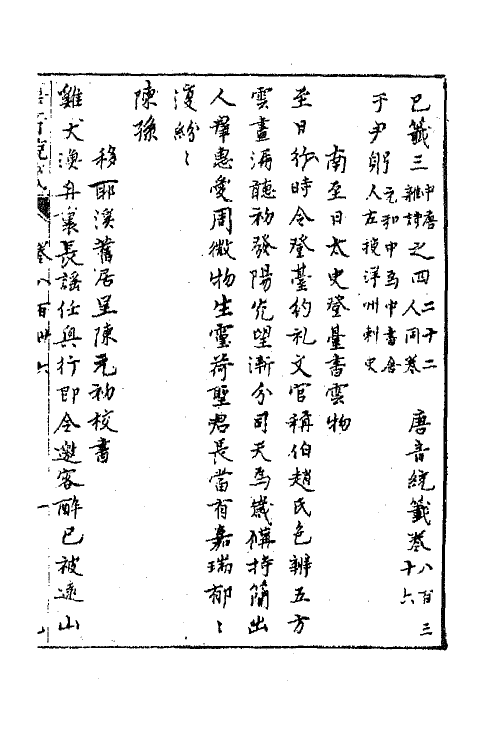 已籤三中唐雜詩之四二十二人同卷 唐音統籤卷八百三十六
于尹躬元和中為中書舍人左授洋州刺史
南至日太史登臺書雲物
至日行時令登臺約礼文官稱伯趙氏色辨五方
雲晝漏聽初發陽光望漸分司天為歲備持簡出
人羣惠愛周微物生靈荷聖君長當有嘉瑞郁〻
復紛〻
陳孫
移耶溪舊居呈陳元初校書
雞犬漁舟裏長謠任興行即令邀客醉已被遠山
卷八百卅六 一